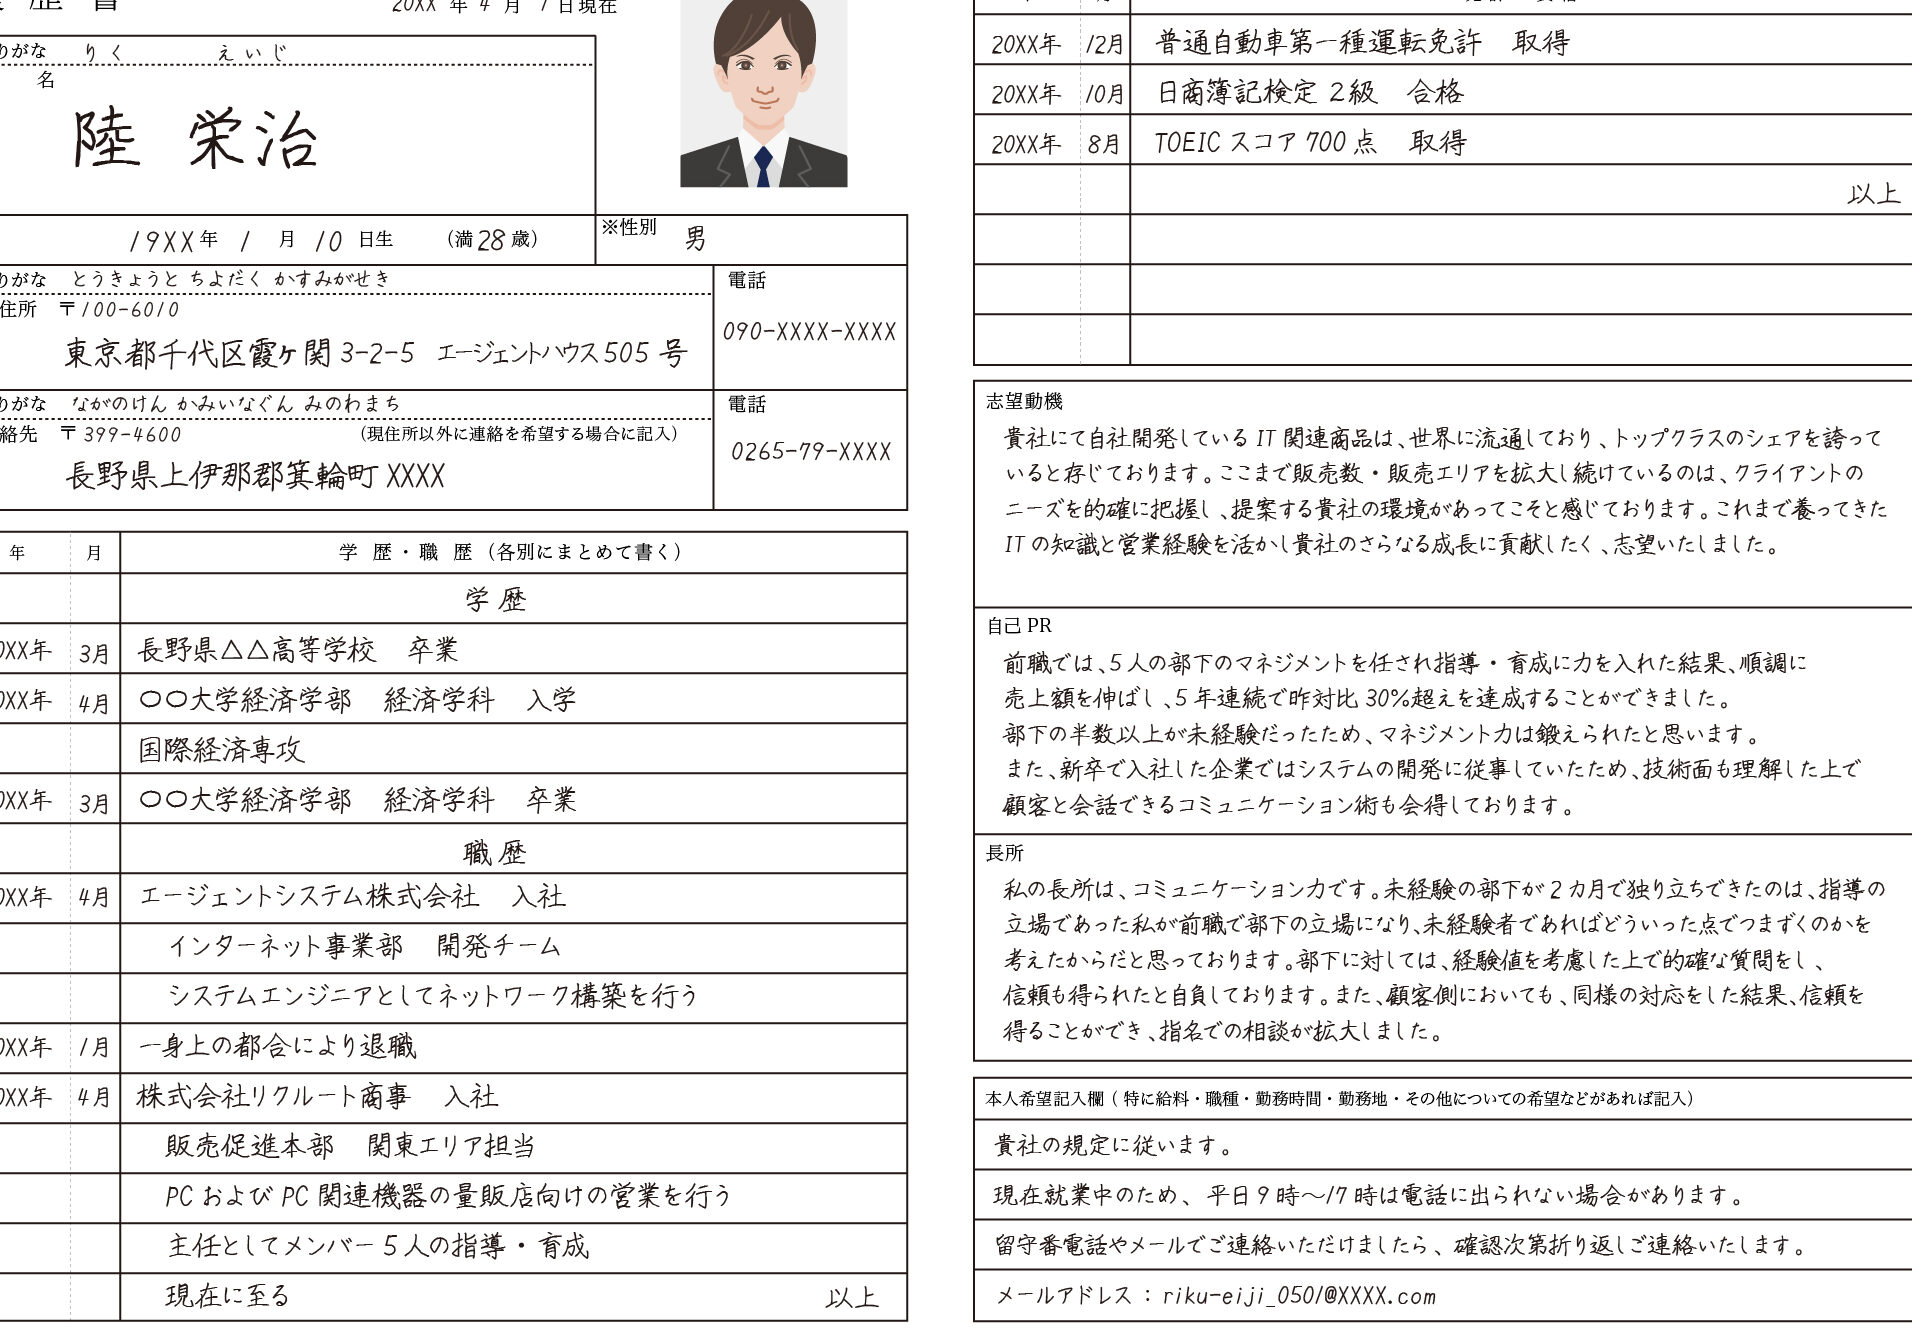 歴 書
20XX 年 4 月 1 日現在
りがな りく えいじ
名
陸 栄治
19XX 年 1 月 10 日生 (満 28 歳)
※性別 男
りがな とうきょうと ちよだく かすみがせき
電話
住所 〒100-6010
090-XXXX-XXXX
東京都千代区霞ヶ関 3-2-5 エージェントハウス505 号
りがな ながのけん かみいなぐん みのわまち
電話
絡先 〒399-4600 (現住所以外に連絡を希望する場合に記入)
0265-79-XXXX
長野県上伊那郡箕輪町 XXXX
年 月 学 歴・職 歴(各別にまとめて書く)
学 歴
0XX年 3月 長野県△△高等学校 卒業
0XX年 4月 〇〇大学経済学部 経済学科 入学
国際経済専攻
0XX年 3月 〇〇大学経済学部 経済学科 卒業
職 歴
0XX年 4月 エージェントシステム株式会社 入社
インターネット事業部 開発チーム
システムエンジニアとしてネットワーク構築を行う
0XX年 1月 一身上の都合により退職
0XX年 4月 株式会社リクルート商事 入社
販売促進本部 関東エリア担当
PC および PC 関連機器の量販店向けの営業を行う
主任としてメンバー 5 人の指導・育成
現在に至る
以上
20XX年 12月 普通自動車第一種運転免許 取得
20XX年 10月 日商簿記検定 2級 合格
20XX年 8月 TOEIC スコア 700 点 取得
以上
志望動機
貴社にて自社開発している IT 関連商品は、世界に流通しており、トップクラスのシェアを誇って
いると存じております。ここまで販売数・販売エリアを拡大し続けているのは、クライアントの
ニーズを的確に把握し、提案する貴社の環境があってこそと感じております。これまで養ってきた
IT の知識と営業経験を活かし貴社のさらなる成長に貢献したく、志望いたしました。
自己 PR
前職では、5 人の部下のマネジメントを任され指導・育成に力を入れた結果、順調に
売上額を伸ばし、5 年連続で昨対比 30%超えを達成することができました。
部下の半数以上が未経験だったため、マネジメント力は鍛えられたと思います。
また、新卒で入社した企業ではシステムの開発に従事していたため、技術面も理解した上で
顧客と会話できるコミュニケーション術も会得しております。
長所
私の長所は、コミュニケーション力です。未経験の部下が 2 カ月で独り立ちできたのは、指導の
立場であった私が前職で部下の立場になり、未経験者であればどういった点でつまずくのかを
考えたからだと思っております。部下に対しては、経験値を考慮した上で的確な質問をし、
信頼も得られたと自負しております。また、顧客側においても、同様の対応をした結果、信頼を
得ることができ、指名での相談が拡大しました。
本人希望記入欄(特に給料・職種・勤務時間・勤務地・その他についての希望などがあれば記入)
貴社の規定に従います。
現在就業中のため、平日 9 時〜17 時は電話に出られない場合があります。
留守番電話やメールでご連絡いただけましたら、確認次第折り返しご連絡いたします。
メールアドレス：riku-eiji_0501@XXXX.com